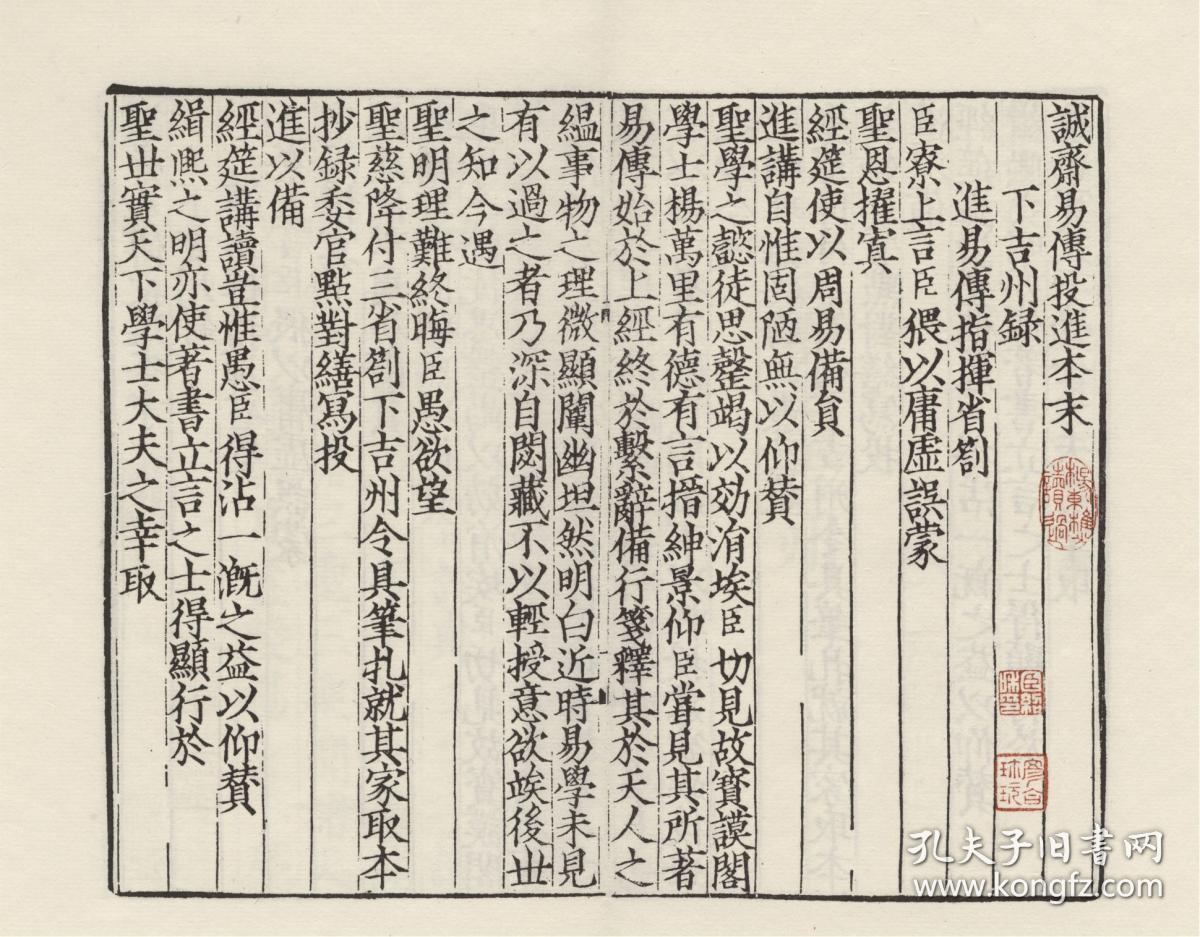 誠齋易傳投進本末
下吉州録
進易傳指揮省劄
臣寮上言臣猥以庸虛誤蒙
聖恩擢寘
經筵使以周易備貟
進講自惟固陋無以仰賛
聖學之懿徒思罄竭以効涓埃臣切見故寳謨閣
學士楊萬里有德有言搢紳景仰臣甞見其所著
易傳始於上經終於繫辭備行箋釋其於天人之
緼事物之理微顯闡幽坦然明白近時易學未見
有以過之者乃深自閟藏不以輕授意欲竢後丗
之知今遇
聖明理難終晦臣愚欲望
聖慈降付三省劄下吉州令具筆札就其家取本
抄録委官點對繕寫投
進以備
經筵講讀豈惟愚臣得沾一溉之益以仰賛
緝熈之明亦使著書立言之士得顯行於
聖丗實天下學士大夫之幸取
孔夫子旧书网
www.kongfz.com